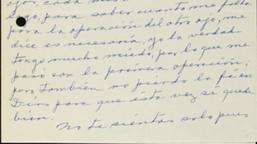 ojos, cada
lejo, para saber cuanto me falta
para la operación del otro ojo, me
dice es necesaria, yo la verdad
tengo mucho miedo, por lo que me
pasó con la primera operación;
pero también no pierdo la fe en
Dios para que ésta vez sí quede
bien.
No te sientas solo pues